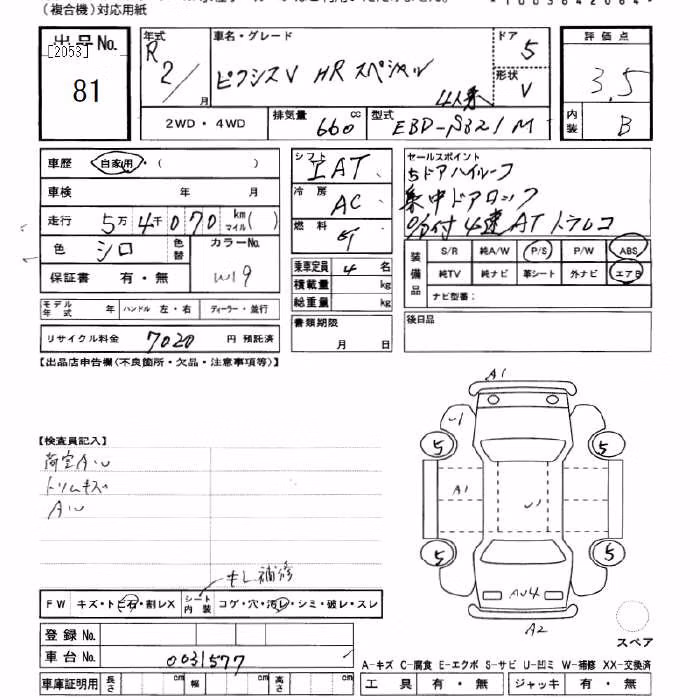 (複合機)対応用紙
出品No.
[2053]
81
年式
R2/
月
車名・グレード
ピクシスV HR スペシャル
4人乗
ドア
5
形状
V
2WD・4WD
排気量
660
cc
型式
EBD-S321M
評価点
3.5
内装
B
車歴
自家用・(　　　)
車検
年　月
走行
5万4千070
km
マイル
(　)
色
シロ
色替
カラーNo.
W19
保証書
有・無
モデル年式
年
ハンドル
左・右
ディーラー・並行
リサイクル料金
7020
円 預託済
シフト
IAT
冷房
AC
燃料
乗車定員
4
名
積載量
kg
総重量
kg
書類期限
月　日
セールスポイント
5ドアハイルーフ
集中ドアロック
4速ATトラレコ
装備品
S/R
純A/W
P/S
P/W
ABS
純TV
純ナビ
革シート
外ナビ
エアB
ナビ型番:
後日品
【出品店申告欄(不良箇所・欠品・注意事項等)】
【検査員記入】
荷室AU
トリムキズ
AU
モレ補修
FW
キズ・トビ石・割レX
シート内装
コゲ・穴・汚レ・シミ・破レ・スレ
登録No.
車台No.
0031577
車庫証明用
長さ
cm
幅
cm
高さ
cm
A1
U1
5
5
A1
U1
5
5
AU4
A2
スペア
A-キズ C-腐食 E-エクボ S-サビ U-凹ミ W-補修 XX-交換済
工具
有・無
ジャッキ
有・無